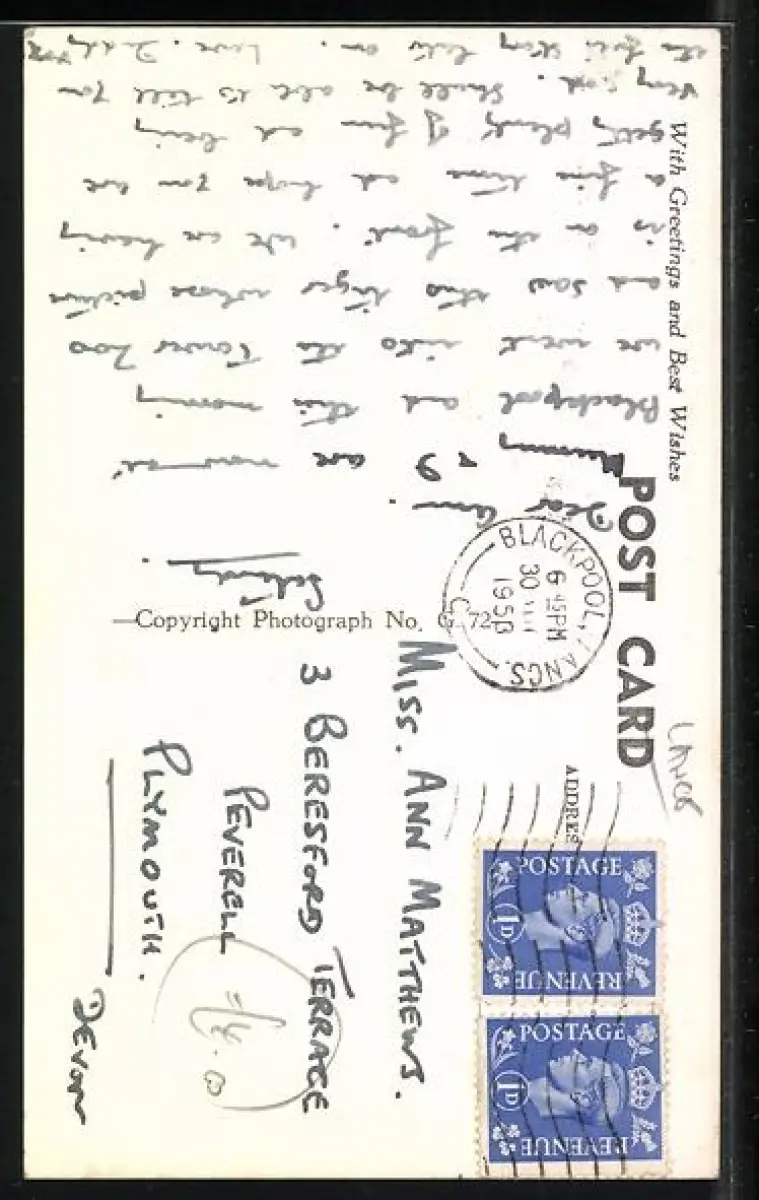 With Greetings and Best Wishes
POST CARD
LANCS
ADDRES
BLACKPOOL, LANCS.
6 45PM
30
1953
C
POSTAGE
1D
REVENUE
POSTAGE
1D
REVENUE
Saturday.
Dear Ann.
Mummy & I are now at
Blackpool and this morning
we went into the Tower Zoo
and saw this tiger whose picture
is on the front. We are having
a fine time and hope you are
getting plenty of fun and being
very good. Shall be able to tell you
the full story later on. Love. Daddy
—Copyright Photograph No. G. 72
MISS. ANN MATTHEWS.
3 BERESFORD TERRACE
PEVERELL
PLYMOUTH.
DEVON